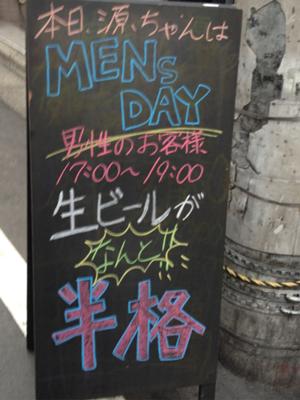 本日、源、ちゃんは
MENs
DAY
男性のお客様
17:00〜19:00
生ビールが
なんと!!
半格